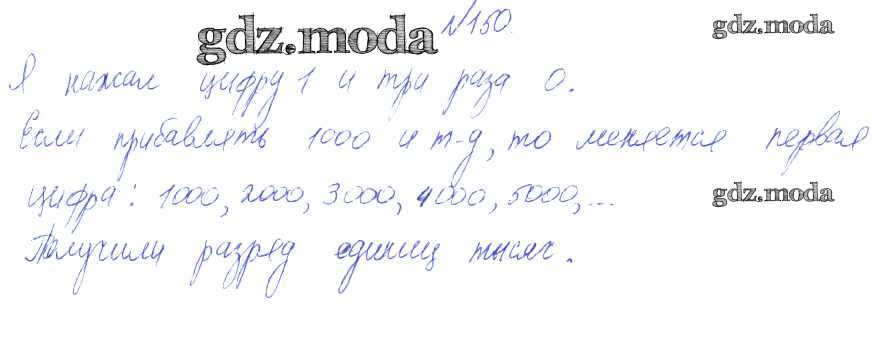 №150.
gdz.moda gdz.moda
Я нажал цифру 1 и три раза 0.
Если прибавлять 1000 и т-д, то меняется первая
цифра: 1000, 2000, 3000, 4000, 5000, ...
gdz.moda
Получили разряд единиц тысяч.